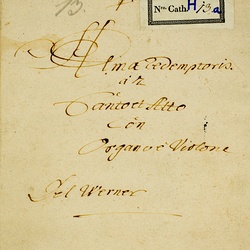 13.
Nro. Cath. H/13.a
Alma Redemptoris
à 2
Canto et Alto
Con
Organo è Violone
Del Werner